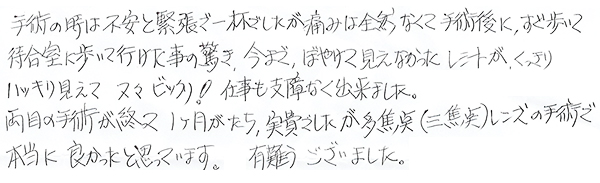 手術の時は不安と緊張で一杯でしたが痛みは全然なくて手術後に、すぐ歩いて
待合室に歩いて行けた事の驚き、今まで、ぼやけて見えなかったレシートが、くっきり
ハッキリ見えて ビックリ!! 仕事も支障なく出来ました。
両目の手術が終って 1ヶ月がたち、実費でしたが多焦点(三焦点)レンズの手術で
本当に 良かったと思っています。 有難う ございました。